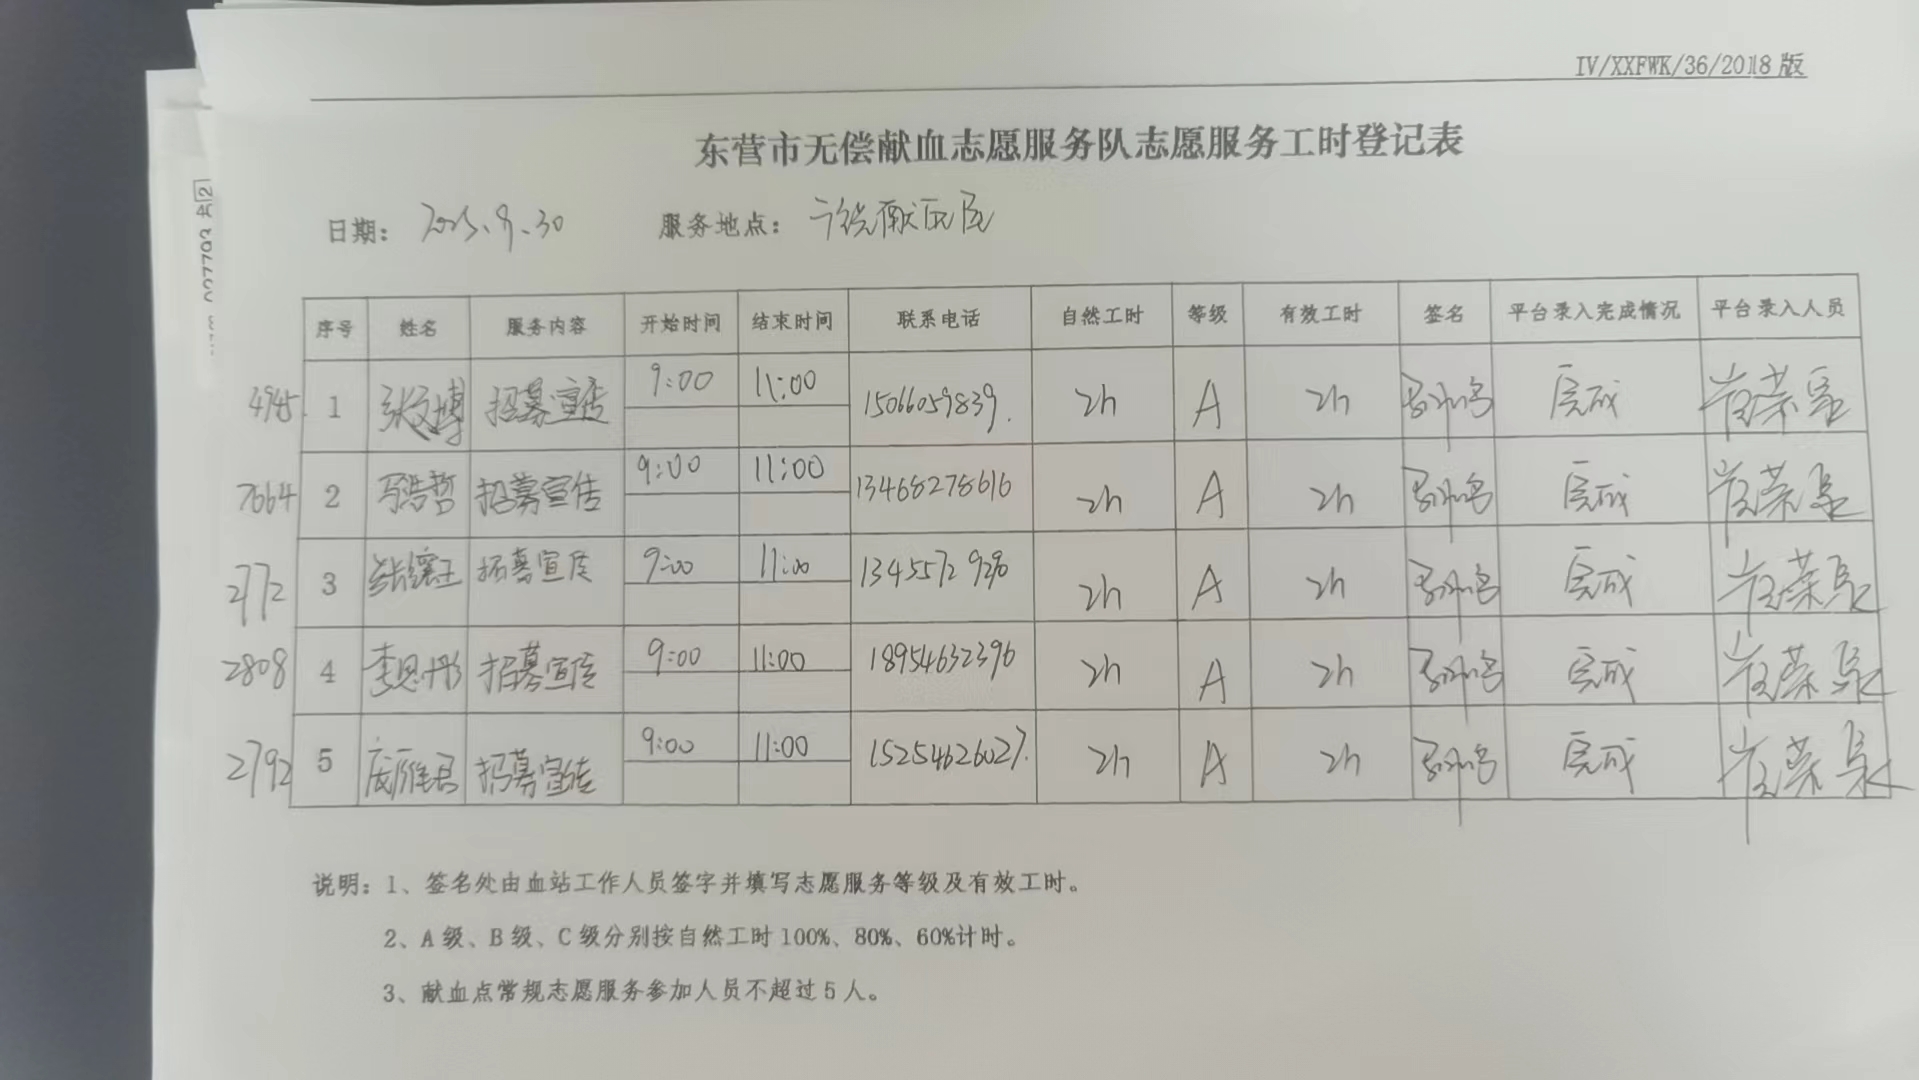 IV/XXFWK/36/2018版
东营市无偿献血志愿服务队志愿服务工时登记表
日期： 2025.9.30 服务地点： 广饶献血屋
序号 姓名 服务内容 开始时间 结束时间 联系电话 自然工时 等级 有效工时 签名 平台录入完成情况 平台录入人员
4945 1 张文博 招募宣传 9:00 11:00 15066059839. 2h A 2h 完成
7664 2 马浩哲 招募宣传 9:00 11:00 13468278616 2h A 2h 完成
2772 3 招募宣传 9:00 11:00 2h A 2h 完成
2808 4 李恩彤 招募宣传 9:00 11:00 18954632396 2h A 2h 完成
2792 5 招募宣传 9:00 11:00 15254626027. 2h A 2h 完成
说明：1、签名处由血站工作人员签字并填写志愿服务等级及有效工时。
2、A级、B级、C级分别按自然工时100%、80%、60%计时。
3、献血点常规志愿服务参加人员不超过5人。